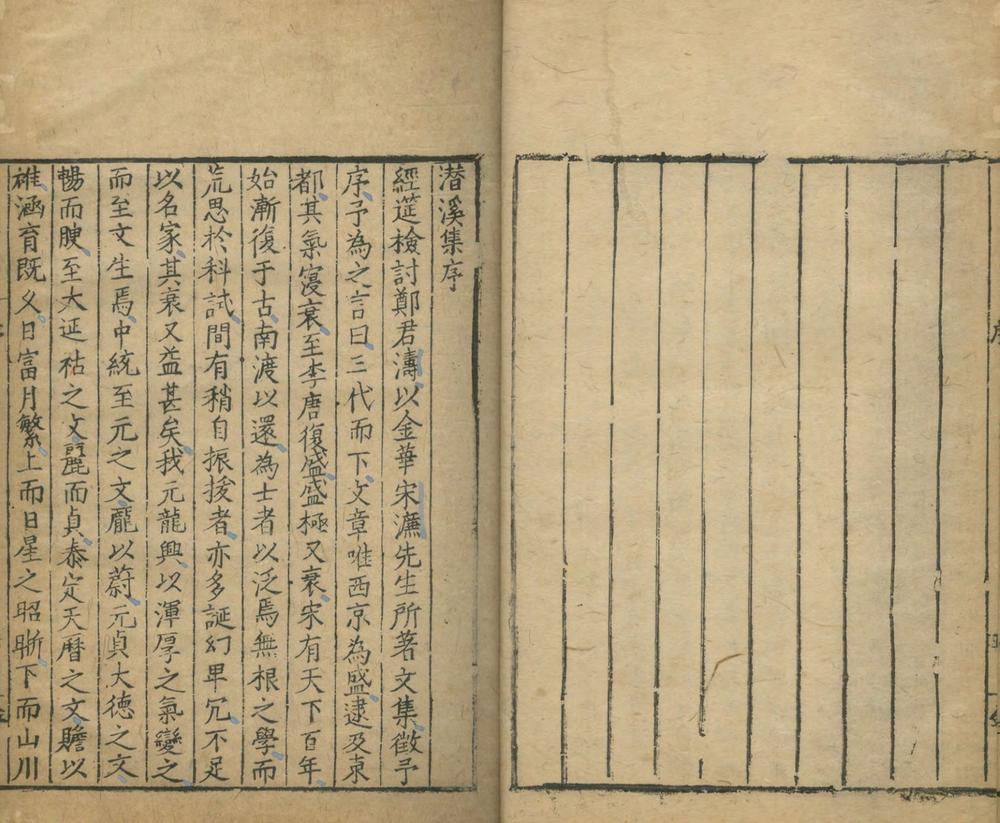 潛溪集序
經筵檢討鄭君濤以金華宋濂先生所著文集徵予
序予為之言曰三代而下文章唯西京為盛逮及東
都其氣寖衰至李唐復盛盛極又衰宋有天下百年
始漸復于古南渡以還為士者以泛焉無根之學而
荒思於科試間有稍自振拔者亦多誕幻卑冗不足
以名家其衰又益甚矣我元龍興以渾厚之氣變之
而至文生焉中統至元之文龐以蔚元貞大德之文
暢而腴至大延祐之文麗而貞泰定天曆之文贍以
雄涵育既久日富月繁上而日星之昭晣下而山川